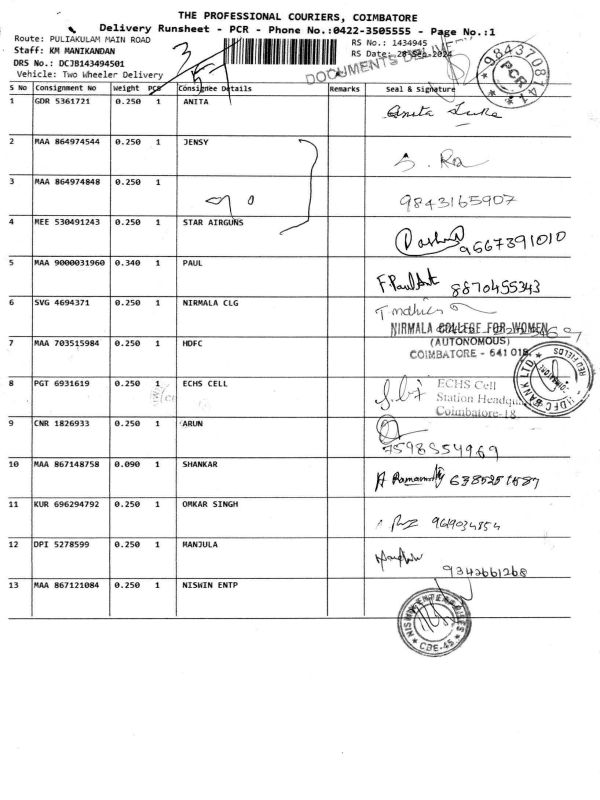 THE PROFESSIONAL COURIERS, COIMBATORE
Delivery Runsheet - PCR - Phone No.:0422-3505555 - Page No.:1
Route: PULIAKULAM MAIN ROAD
RS No.: 1434945
Staff: KM MANIKANDAN
RS Date: 28-Sep-2024
DRS No.: DCJB143494501
Vehicle: Two Wheeler Delivery
3
57
DOCUMENTS DELIVERY
9843708141
PCR
S No Consignment No Weight PCS Consignee Details Remarks Seal & Signature
1 GDR 5361721 0.250 1 ANITA
Anita
2 MAA 864974544 0.250 1 JENSY
3 MAA 864974848 0.250 1
9843165907
4 MEE 530491243 0.250 1 STAR AIRGUNS
9667391010
5 MAA 9000031960 0.340 1 PAUL
8870455343
6 SVG 4694371 0.250 1 NIRMALA CLG
NIRMALA COLLEGE FOR WOMEN
(AUTONOMOUS)
COIMBATORE - 641 018
7 MAA 703515984 0.250 1 HDFC
HDFC BANK LTD.
RED FIELDS
COIMBATORE
8 PGT 6931619 0.250 1 ECHS CELL
ECHS Cell
Station Headqu
Coimbatore-18
9 CNR 1826933 0.250 1 ARUN
7598554969
10 MAA 867148758 0.090 1 SHANKAR
11 KUR 696294792 0.250 1 OMKAR SINGH
12 DPI 5278599 0.250 1 MANJULA
9342661268
13 MAA 867121084 0.250 1 NISWIN ENTP
NISWIN ENTERPRISES
CBE-45